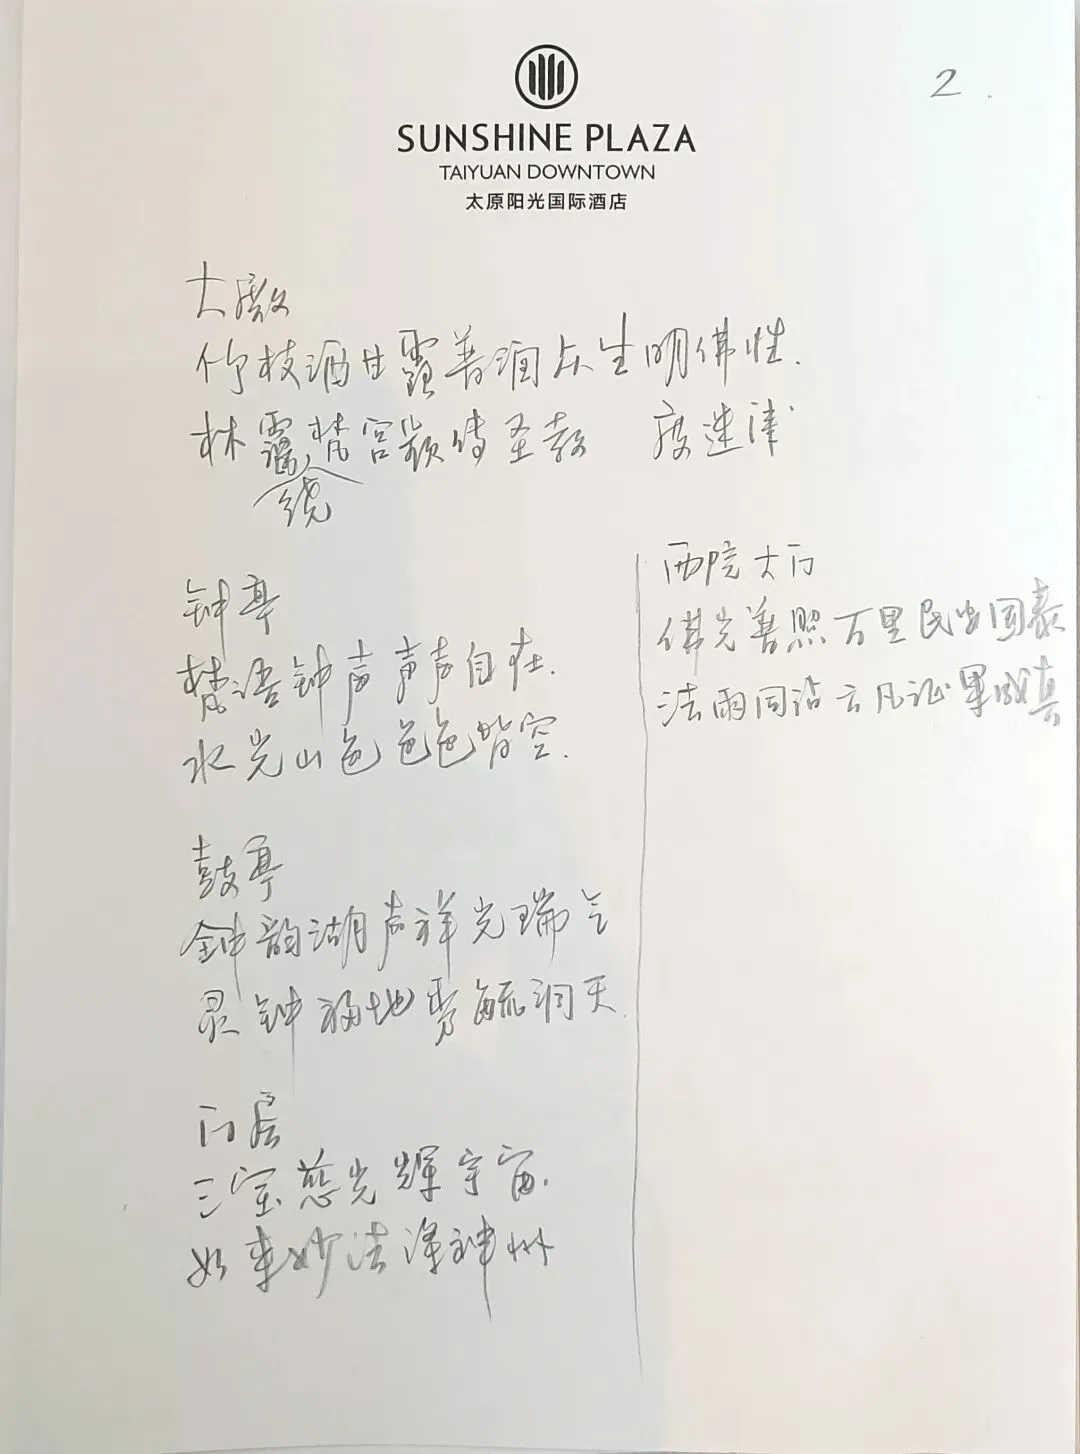 2.
SUNSHINE PLAZA
TAIYUAN DOWNTOWN
太原阳光国际酒店
大殿
竹枝洒甘露普润众生明佛性.
林霭梵宫颂传圣教 度迷津
绕
钟亭
梵语钟声声声自在.
水光山色色色皆空.
鼓亭
钟韵湖声祥光瑞气
灵钟福地秀毓洞天.
门层
三宝慈光辉宇宙.
如来妙法泽神州
西院大门
佛光普照万里民安国泰
法雨同沾云凡证果成真